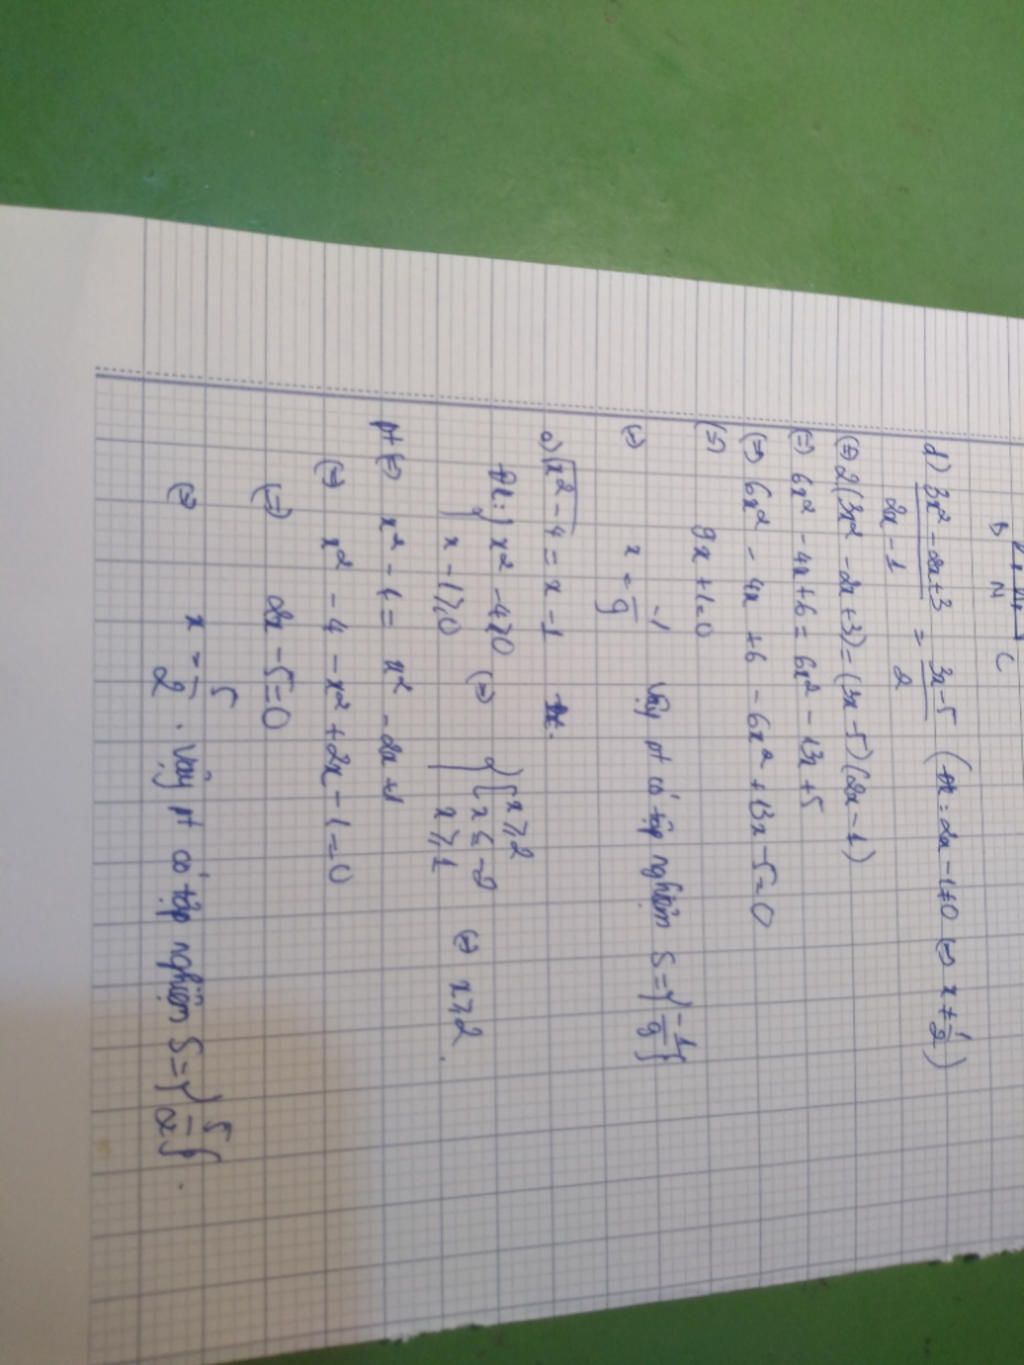 B N C
d) 3x² - 2x + 3 / 2x - 1 = 3x - 5 / 2 (đk: 2x - 1 ≠ 0 ⇔ x ≠ 1/2)
⇔ 2(3x² - 2x + 3) = (3x - 5)(2x - 1)
⇔ 6x² - 4x + 6 = 6x² - 13x + 5
⇔ 6x² - 4x + 6 - 6x² + 13x - 5 = 0
⇔ 9x + 1 = 0
⇔ x = -1/9 Vậy pt có tập nghiệm S = { -1/9 }
e) √x² - 4 = x - 1
Đk: { x² - 4 ≥ 0 x - 1 ≥ 0 ⇔ { [ x ≥ 2 x ≤ -2 x ≥ 1 ⇔ x ≥ 2.
pt ⇔ x² - 4 = x² - 2x + 1
⇔ x² - 4 - x² + 2x - 1 = 0
⇔ 2x - 5 = 0
⇔ x = 5/2 . Vậy pt có tập nghiệm S = { 5/2 }.